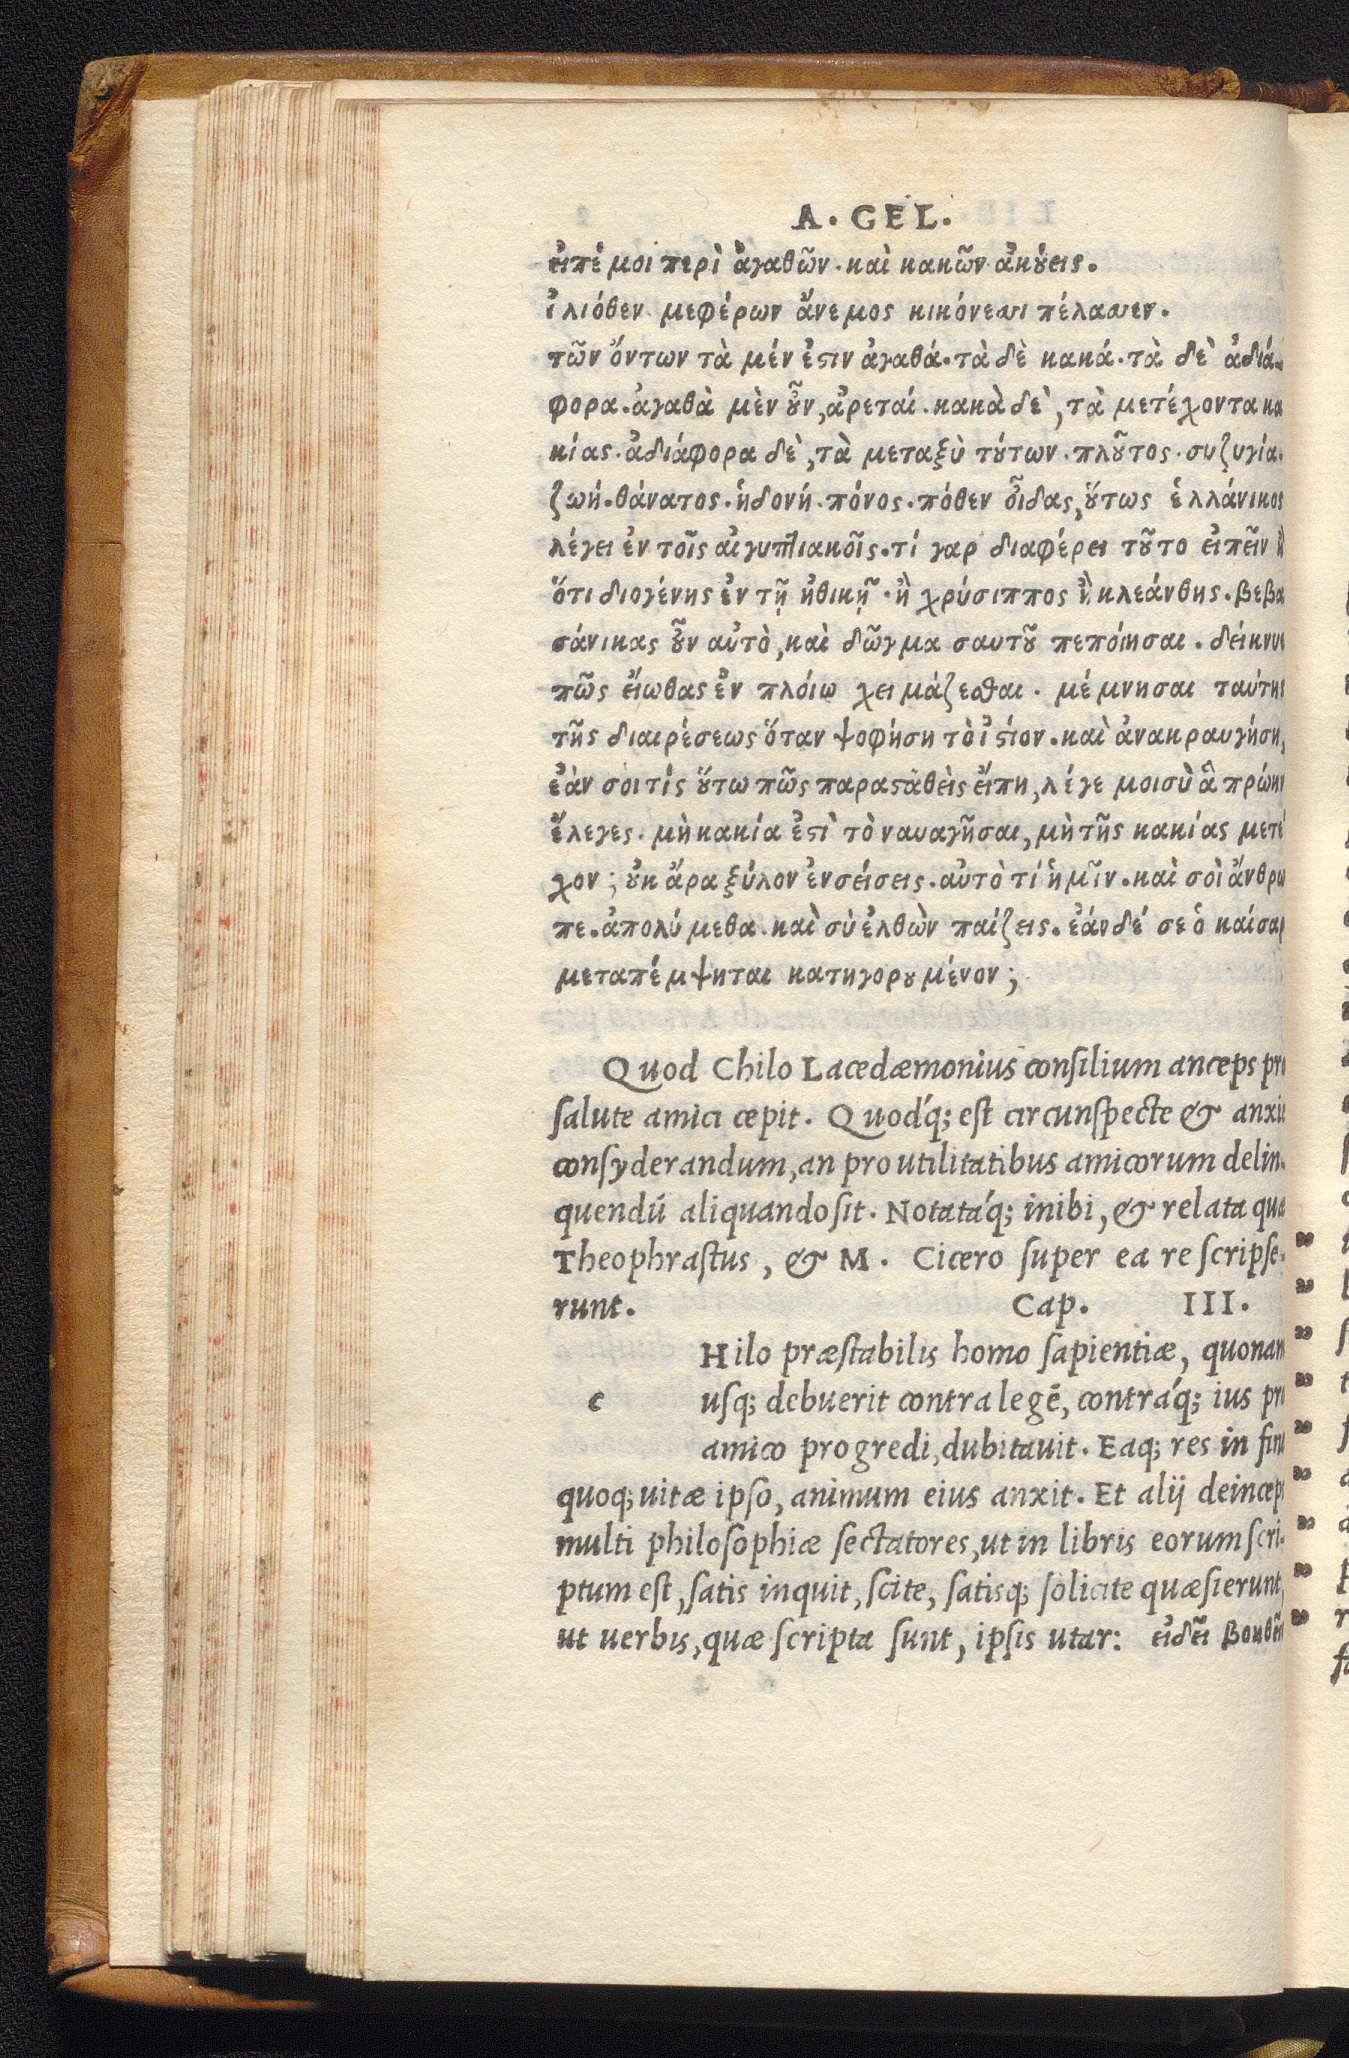 A. GEL.
εἰπέ μοι περὶ ἀγαθῶν. καὶ κακῶν ἀκούεις.
ἰλιόθεν μεφέρων ἄνεμος κικόνεσσι πέλασσεν.
τῶν ὄντων τὰ μέν ἐστιν ἀγαθά. τὰ δὲ κακά. τὰ δὲ ἀδιά-
φορα. ἀγαθὰ μὲν οὖν, ἀρεταί. κακὰ δὲ, τὰ μετέχοντα κα
κίας. ἀδιάφορα δὲ, τὰ μεταξὺ τούτων. πλοῦτος. συζυγία.
ζωή. θάνατος. ἡδονή. πόνος. πόθεν οἶδας, οὕτως ἑλλάνικος
λέγει ἐν τοῖς αἰγυπτιακοῖς. τί γαρ διαφέρει τοῦτο εἰπεῖν ἢ
ὅτι διογένης ἐν τῇ ἠθικῇ. ἢ χρύσιππος ἢ κλεάνθης. βεβα
σάνικας οὖν αὐτὸ, καὶ δῶγμα σαυτοῦ πεπόιησαι. δείκνυε
πῶς εἴωθας ἐν πλόιῳ χειμάζεσθαι. μέμνησαι ταύτης
τῆς διαιρέσεως ὅταν ψοφήση τὸ ἱστίον. καὶ ἀνακραυγήση,
ἐὰν σοι τίς οὕτω πῶς παρασταθεὶς εἴπη, λέγε μοι σὺ ἃ πρώην
ἔλεγες. μὴ κακία ἐστὶ τὸ ναυαγῆσαι, μὴ τῆς κακίας μετέ
χον; οὐκ ἄρα ξύλον ἐνσείσεις. αὐτὸ τί ἡμῖν. καὶ σοὶ ἄνθρω
πε. ἀπολύμεθα. καὶ σὺ ἐλθὼν παίζεις. ἐάν δέ σε ὁ καίσαρ
μεταπέμψηται κατηγορουμένον;
Quod Chilo Lacedæmonius consilium anceps pro
salute amici cepit. Quod́q; est circunspecte & anxie
consyderandum, an pro utilitatibus amicorum delin-
quendū aliquando sit. Notatáq; inibi, & relata quæ
Theophrastus, & M. Cicero super ea re scripse-
runt. Cap. III.
Hilo præstabilis homo sapientiæ, quonam
c usq; debuerit contra legē, contráq; ius pro
amico progredi, dubitauit. Eaq; res in fine
quoq; uitæ ipso, animum eius anxit. Et alij deinceps
multi philosophiæ sectatores, ut in libris eorum scri-
ptum est, satis inquit, scite, satisq; solicite quæsierunt,
ut uerbis, quæ scripta sunt, ipsis utar: εἰδεῖ βοηθεῖν